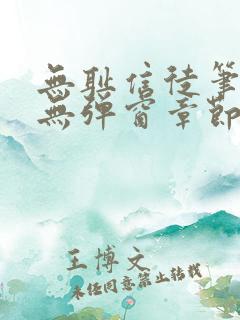 無耻信徒筆
無彈窗章節
王博文
未经同意禁止转载